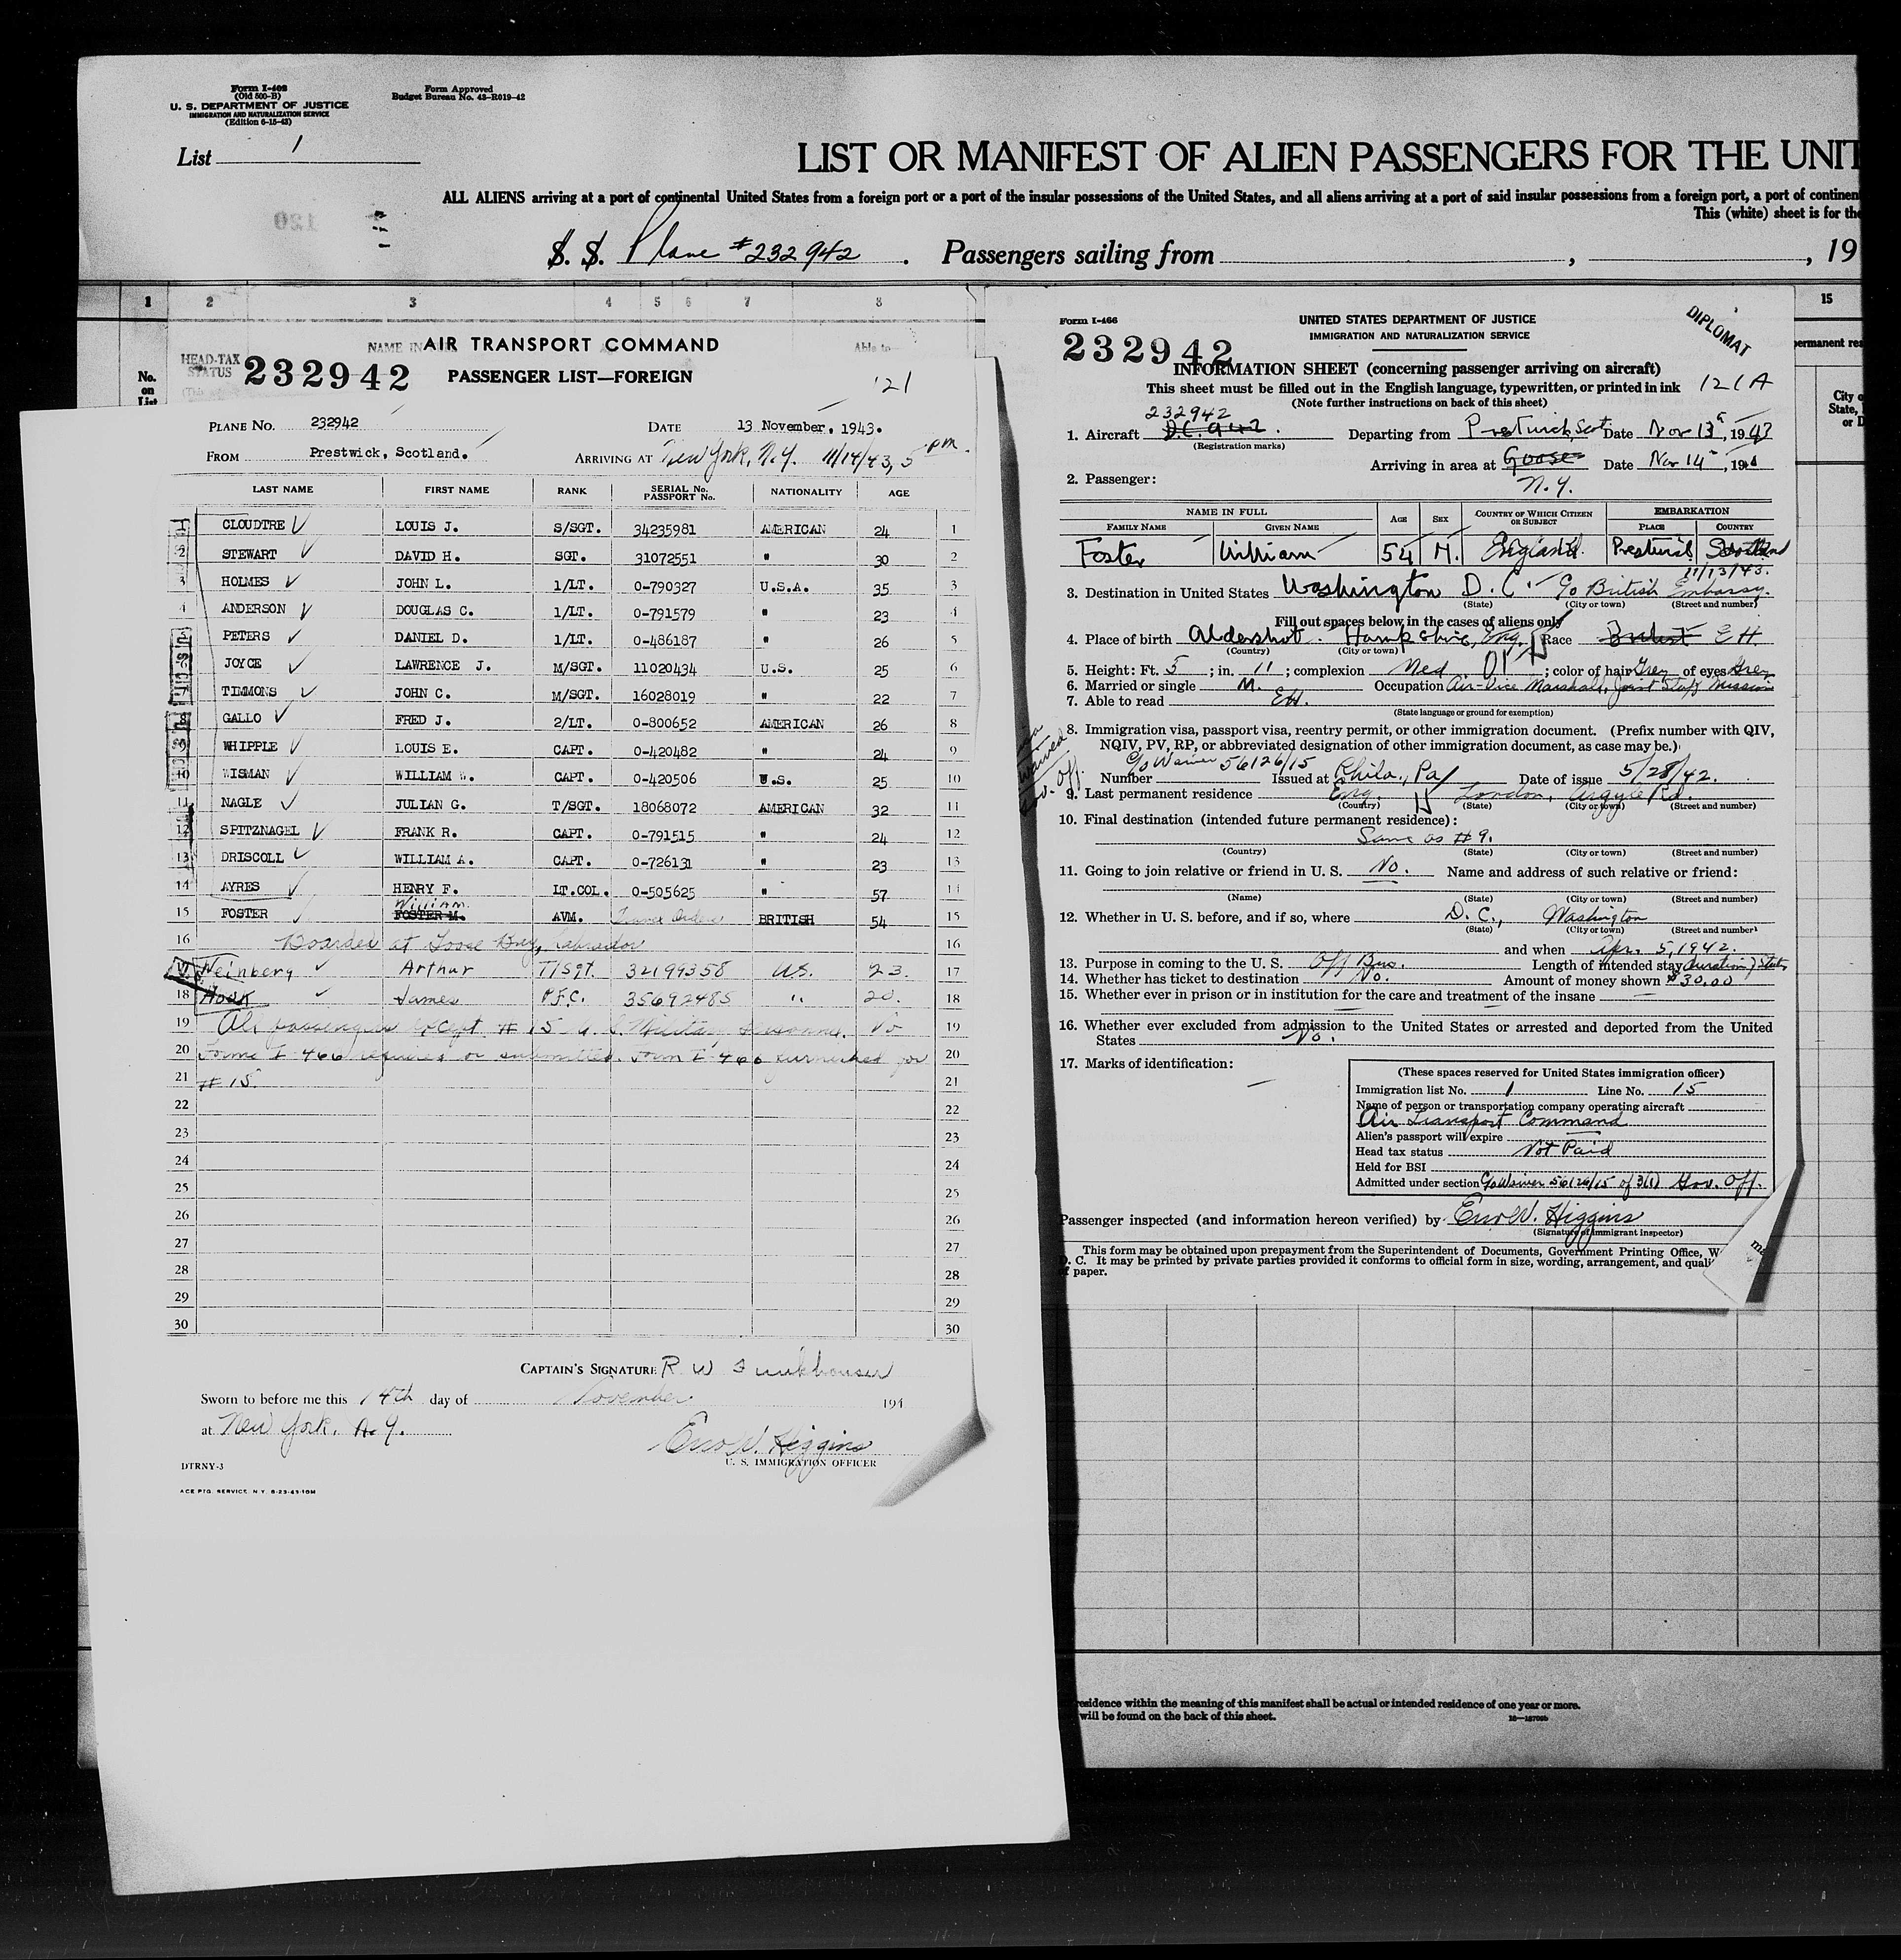 Form I-402
(Old 500-B)
U. S. DEPARTMENT OF JUSTICE
IMMIGRATION AND NATURALIZATION SERVICE
(Edition 6-15-43)
Form Approved
Budget Bureau No. 43-R019-42
List 1
LIST OR MANIFEST OF ALIEN PASSENGERS FOR THE UNIT
ALL ALIENS arriving at a port of continental United States from a foreign port or a port of the insular possessions of the United States, and all aliens arriving at a port of said insular possessions from a foreign port, a port of continen
This (white) sheet is for the
120
S. S. Plane #232942. Passengers sailing from , , 19
1 2 3 4 5 6 7 8 15
HEAD-TAX STATUS
NAME IN
Able to
No. on List
permanent res
City o
State,
or D
AIR TRANSPORT COMMAND
232942 PASSENGER LIST—FOREIGN
121
PLANE No. 232942 DATE 13 November, 1943.
FROM Prestwick, Scotland. ARRIVING AT New York, N.Y. 11/14/43, 5 pm.
LAST NAME FIRST NAME RANK SERIAL No. PASSPORT No. NATIONALITY AGE
CLOUDTRE LOUIS J. S/SGT. 34235981 AMERICAN 24 1
2 STEWART DAVID H. SGT. 31072551 " 30 2
3 HOLMES JOHN L. 1/LT. 0-790327 U.S.A. 35 3
4 ANDERSON DOUGLAS C. 1/LT. 0-791579 " 23 4
PETERS DANIEL D. 1/LT. 0-486187 " 26 5
JOYCE LAWRENCE J. M/SGT. 11020434 U.S. 25 6
7 TIMMONS JOHN C. M/SGT. 16028019 " 22 7
8 GALLO FRED J. 2/LT. 0-800652 AMERICAN 26 8
9 WHIPPLE LOUIS E. CAPT. 0-420482 " 24 9
10 WISMAN WILLIAM W. CAPT. 0-420506 U.S. 25 10
11 NAGLE JULIAN G. T/SGT. 18068072 AMERICAN 32 11
12 SPITZNAGEL FRANK R. CAPT. 0-791515 " 24 12
13 DRISCOLL WILLIAM A. CAPT. 0-726131 " 23 13
14 AYRES HENRY F. LT.COL. 0-505625 " 57 14
William
15 FOSTER FOSTER M. AVM. Travel Orders BRITISH 54 15
16 Boarded at Goose Bay, Labrador 16
Weinberg Arthur T/Sgt. 32199358 US. 23. 17
18 Hook James P.F.C. 35692485 " 20. 18
19 All passengers except #15 U.S. Military Personnel. No 19
20 Forms I-466 required or submitted. Form I-466 furnished for 20
21 #15. 21
22 22
23 23
24 24
25 25
26 26
27 27
28 28
29 29
30 30
CAPTAIN'S SIGNATURE R W
Sworn to before me this 14th day of November 194
at New York, N.Y.
Eno W. Higgins
U. S. IMMIGRATION OFFICER
DTRNY-3
ACE PTG. SERVICE. N.Y. 6-23-43-10M
Form I-466
UNITED STATES DEPARTMENT OF JUSTICE
IMMIGRATION AND NATURALIZATION SERVICE
DIPLOMAT
232942
INFORMATION SHEET (concerning passenger arriving on aircraft)
This sheet must be filled out in the English language, typewritten, or printed in ink 121A
(Note further instructions on back of this sheet)
232942
1. Aircraft D.C. 942. Departing from Prestwick, Scot Date Nov 13, 1943
(Registration marks)
Arriving in area at Goose Date Nov 14, 194
N.Y.
2. Passenger:
NAME IN FULL AGE SEX COUNTRY OF WHICH CITIZEN OR SUBJECT EMBARKATION
FAMILY NAME GIVEN NAME PLACE COUNTRY
Foster William 54 M. England. Prestwick Scotland
11/13/43.
3. Destination in United States Washington D.C. c/o British Embassy.
(State) (City or town) (Street and number)
Fill out spaces below in the cases of aliens only
4. Place of birth Aldershot. Hampshire, Eng. Race British EH
(Country) (City or town)
5. Height: Ft. 5; in. 11; complexion Med; color of hair Grey of eyes Grey
6. Married or single M. Occupation Air-Vice Marshall, Joint Staff Mission
7. Able to read EH.
(State language or ground for exemption)
8. Immigration visa, passport visa, reentry permit, or other immigration document. (Prefix number with QIV,
NQIV, PV, RP, or abbreviated designation of other immigration document, as case may be.)
Number c/o Waiver 56126/15 Issued at Phila., Pa Date of issue 5/28/42.
9. Last permanent residence Eng. London, Argyle Rd.
(Country) (State) (City or town) (Street and number)
10. Final destination (intended future permanent residence):
Same as #9.
(Country) (State) (City or town) (Street and number)
11. Going to join relative or friend in U. S. No. Name and address of such relative or friend:
(Name) (State) (City or town) (Street and number)
12. Whether in U. S. before, and if so, where D.C., Washington
(State) (City or town) (Street and number)
and when Apr. 5, 1942.
13. Purpose in coming to the U. S. Off Bus. Length of intended stay duration
14. Whether has ticket to destination No. Amount of money shown $30.00
15. Whether ever in prison or in institution for the care and treatment of the insane —
16. Whether ever excluded from admission to the United States or arrested and deported from the United
States No.
17. Marks of identification: —
(These spaces reserved for United States immigration officer)
Immigration list No. 1 Line No. 15
Name of person or transportation company operating aircraft
Air Transport Command
Alien's passport will expire
Head tax status Not Paid
Held for BSI
Admitted under section c/o Waiver 56126/15 of 3(1) Gov. Off.
Passenger inspected (and information hereon verified) by Eno W. Higgins
(Signature of immigrant inspector)
This form may be obtained upon prepayment from the Superintendent of Documents, Government Printing Office, W
D. C. It may be printed by private parties provided it conforms to official form in size, wording, arrangement, and quali
of paper.
residence within the meaning of this manifest shall be actual or intended residence of one year or more.
will be found on the back of this sheet.